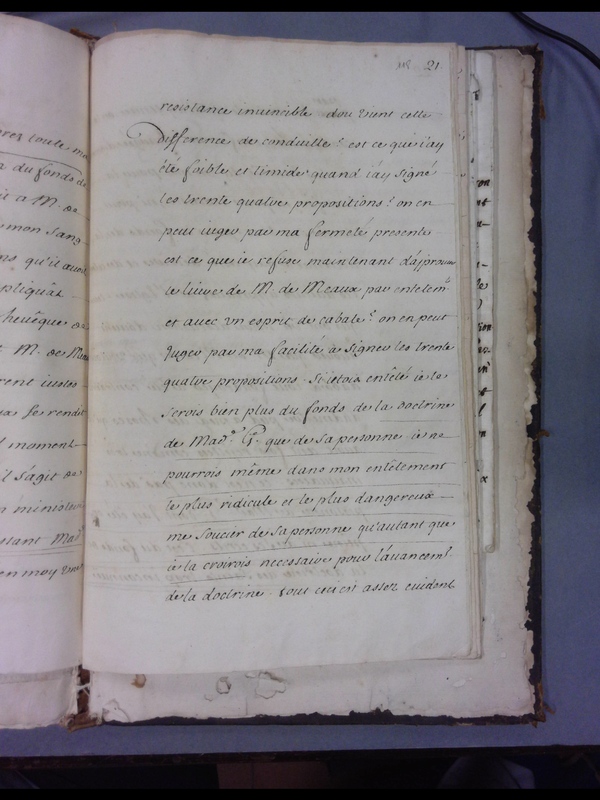 118 21
resistance inuincible d'ou vient cette
difference de conduitte? est ce que i'ay
été foible et timide quand i'ay signé
les trente quatre propositions? on en
peut iuger par ma fermeté presente
est ce que ie refuse maintenant d'approuuer
le liure de M. de Meaux par entetem.t
et avec un esprit de cabale? on en peut
iuger par ma facilité à signer les trente
quatre propositions. Si i'etois entêté ie le
serois bien plus du fonds de la doctrine
de Mad.e G. que de sa personne ie ne
pourrois même dans mon entêtement
le plus ridicule et le plus dangereux
me soucier de sa personne qu'autant que
ie la croirois necessaire pour l'auancem.t
de la doctrine. tout ceci est assez euident
arez toute ma
du fonds de
a M. de
mon sang
ns qu'il avoit
pliquât
heuêque de
M. de Meaux
rent iustes
se rendit
moment
il s'agit de
ministere
stant Mad.e
en moy une